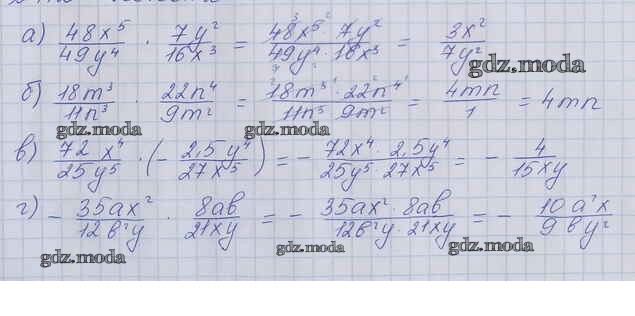 а) 48x⁵/49y⁴ · 7y²/16x³ = 48x⁵ · 7y²/49y⁴ · 16x³ = 3x²/7y²
gdz.moda
б) 18m³/11n³ · 22n⁴/9m² = 18m³ · 22n⁴/11n³ · 9m² = 4mn/1 = 4mn
gdz.moda gdz.moda
в) 72x⁴/25y⁵ · (- 2,5y⁴/27x⁵) = - 72x⁴ · 2,5y⁴/25y⁵ · 27x⁵ = - 4/15xy
г) - 35ax²/12b²y · 8ab/21xy = - 35ax² · 8ab/12b²y · 21xy = - 10a²x/9by²
gdz.moda gdz.moda gdz.moda